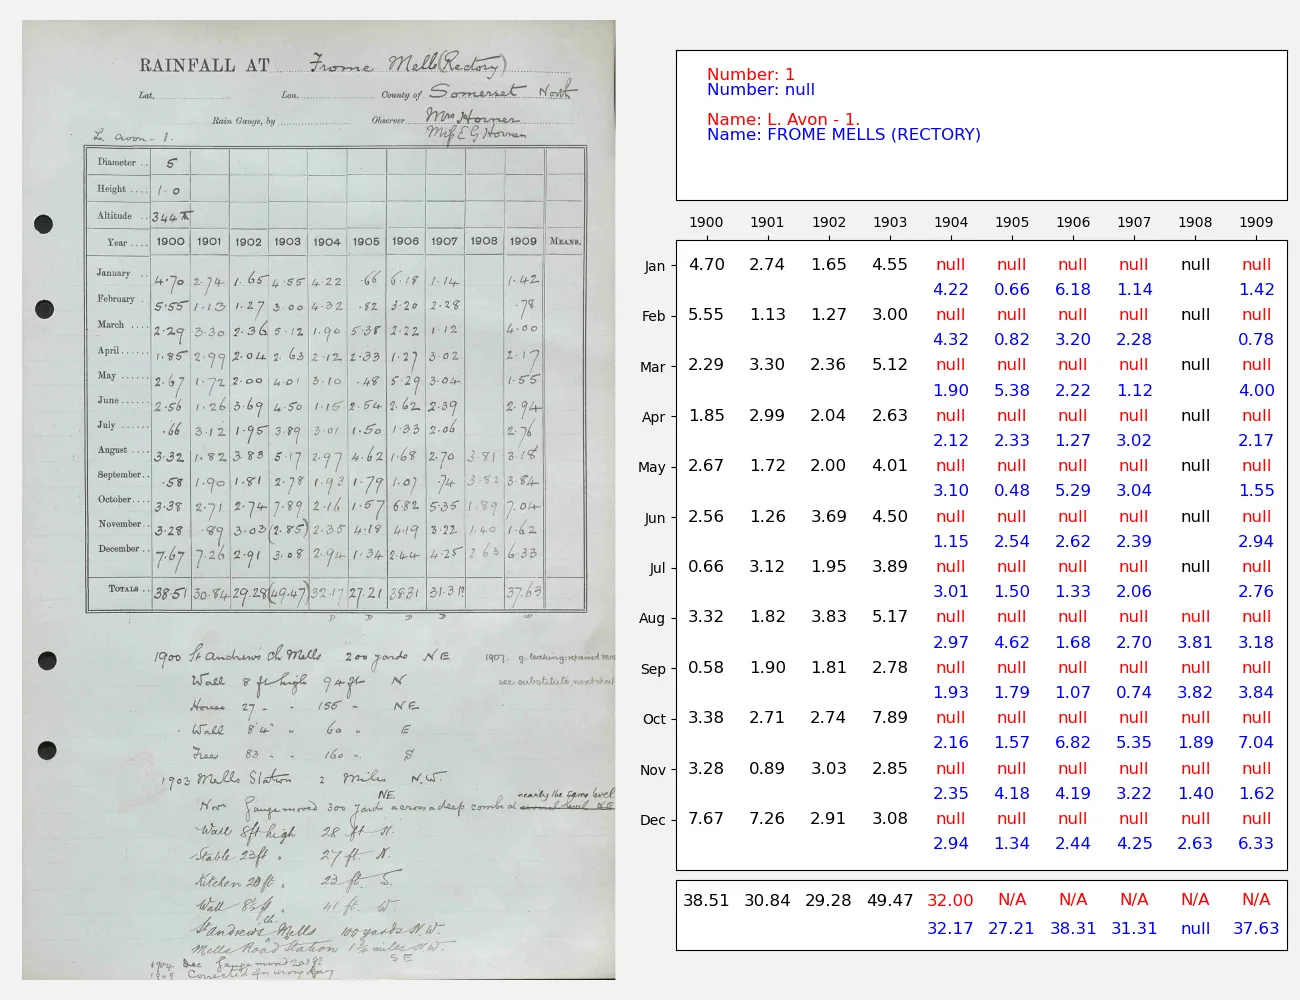 RAINFALL AT Frome Mells (Rectory)
Lat. Lon. County of Somerset North
Rain Gauge, by Observer Mrs Horner
L. Avon - 1. Miss E G Horner
Diameter .. 5
Height .... 1.0
Altitude .. 344 ft
Year .... 1900 1901 1902 1903 1904 1905 1906 1907 1908 1909 MEANS.
January .. 4.70 2.74 1.65 4.55 4.22 .66 6.18 1.14 1.42
February .. 5.55 1.13 1.27 3.00 4.32 .82 3.20 2.28 .78
March .... 2.29 3.30 2.36 5.12 1.90 5.38 2.22 1.12 4.00
April ...... 1.85 2.99 2.04 2.63 2.12 2.33 1.27 3.02 2.17
May ...... 2.67 1.72 2.00 4.01 3.10 .48 5.29 3.04 1.55
June ...... 2.56 1.26 3.69 4.50 1.15 2.54 2.62 2.39 2.94
July ...... .66 3.12 1.95 3.89 3.01 1.50 1.33 2.06 2.76
August .... 3.32 1.82 3.83 5.17 2.97 4.62 1.68 2.70 3.81 3.18
September.. .58 1.90 1.81 2.78 1.93 1.79 1.07 .74 3.82 3.84
October.... 3.38 2.71 2.74 7.89 2.16 1.57 6.82 5.35 1.89 7.04
November .. 3.28 .89 3.03 (2.85) 2.35 4.18 4.19 3.22 1.40 1.62
December .. 7.67 7.26 2.91 3.08 2.94 1.34 2.44 4.25 2.63 6.33
TOTALS .. 38.51 30.84 29.28 (49.47) 32.17 27.21 38.31 31.31 37.63
D D D D
1900 St Andrew's Ch Mells 200 yards NE 1907. g. leaking: repaired
Wall 8 ft high 94 ft N see substitute, next sheet
House 27 " " 155 " NE
Wall 8'4" " 60 " E
Trees 83 " 160 " S
1903 Mells Station 2 Miles N.W.
NE nearly the same level
Novr Gauge moved 300 yards across a deep combe
Wall 8ft high 28 ft N.
Stable 23ft " 27 ft. N.
Kitchen 20ft " 23 ft. S.
Wall 8½ft " 41 ft W.
St Andrews ch. Mells 100 yards N.W.
Mells Road Station miles N.W.
S E
1904 Dec Gauge moved
1909 Corrected for wrong day
Number: 1
Number: null
Name: L. Avon - 1.
Name: FROME MELLS (RECTORY)
1900 1901 1902 1903 1904 1905 1906 1907 1908 1909
Jan 4.70 2.74 1.65 4.55 null null null null null null
4.22 0.66 6.18 1.14 1.42
Feb 5.55 1.13 1.27 3.00 null null null null null null
4.32 0.82 3.20 2.28 0.78
Mar 2.29 3.30 2.36 5.12 null null null null null null
1.90 5.38 2.22 1.12 4.00
Apr 1.85 2.99 2.04 2.63 null null null null null null
2.12 2.33 1.27 3.02 2.17
May 2.67 1.72 2.00 4.01 null null null null null null
3.10 0.48 5.29 3.04 1.55
Jun 2.56 1.26 3.69 4.50 null null null null null null
1.15 2.54 2.62 2.39 2.94
Jul 0.66 3.12 1.95 3.89 null null null null null null
3.01 1.50 1.33 2.06 2.76
Aug 3.32 1.82 3.83 5.17 null null null null null null
2.97 4.62 1.68 2.70 3.81 3.18
Sep 0.58 1.90 1.81 2.78 null null null null null null
1.93 1.79 1.07 0.74 3.82 3.84
Oct 3.38 2.71 2.74 7.89 null null null null null null
2.16 1.57 6.82 5.35 1.89 7.04
Nov 3.28 0.89 3.03 2.85 null null null null null null
2.35 4.18 4.19 3.22 1.40 1.62
Dec 7.67 7.26 2.91 3.08 null null null null null null
2.94 1.34 2.44 4.25 2.63 6.33
38.51 30.84 29.28 49.47 32.00 N/A N/A N/A N/A N/A
32.17 27.21 38.31 31.31 null 37.63